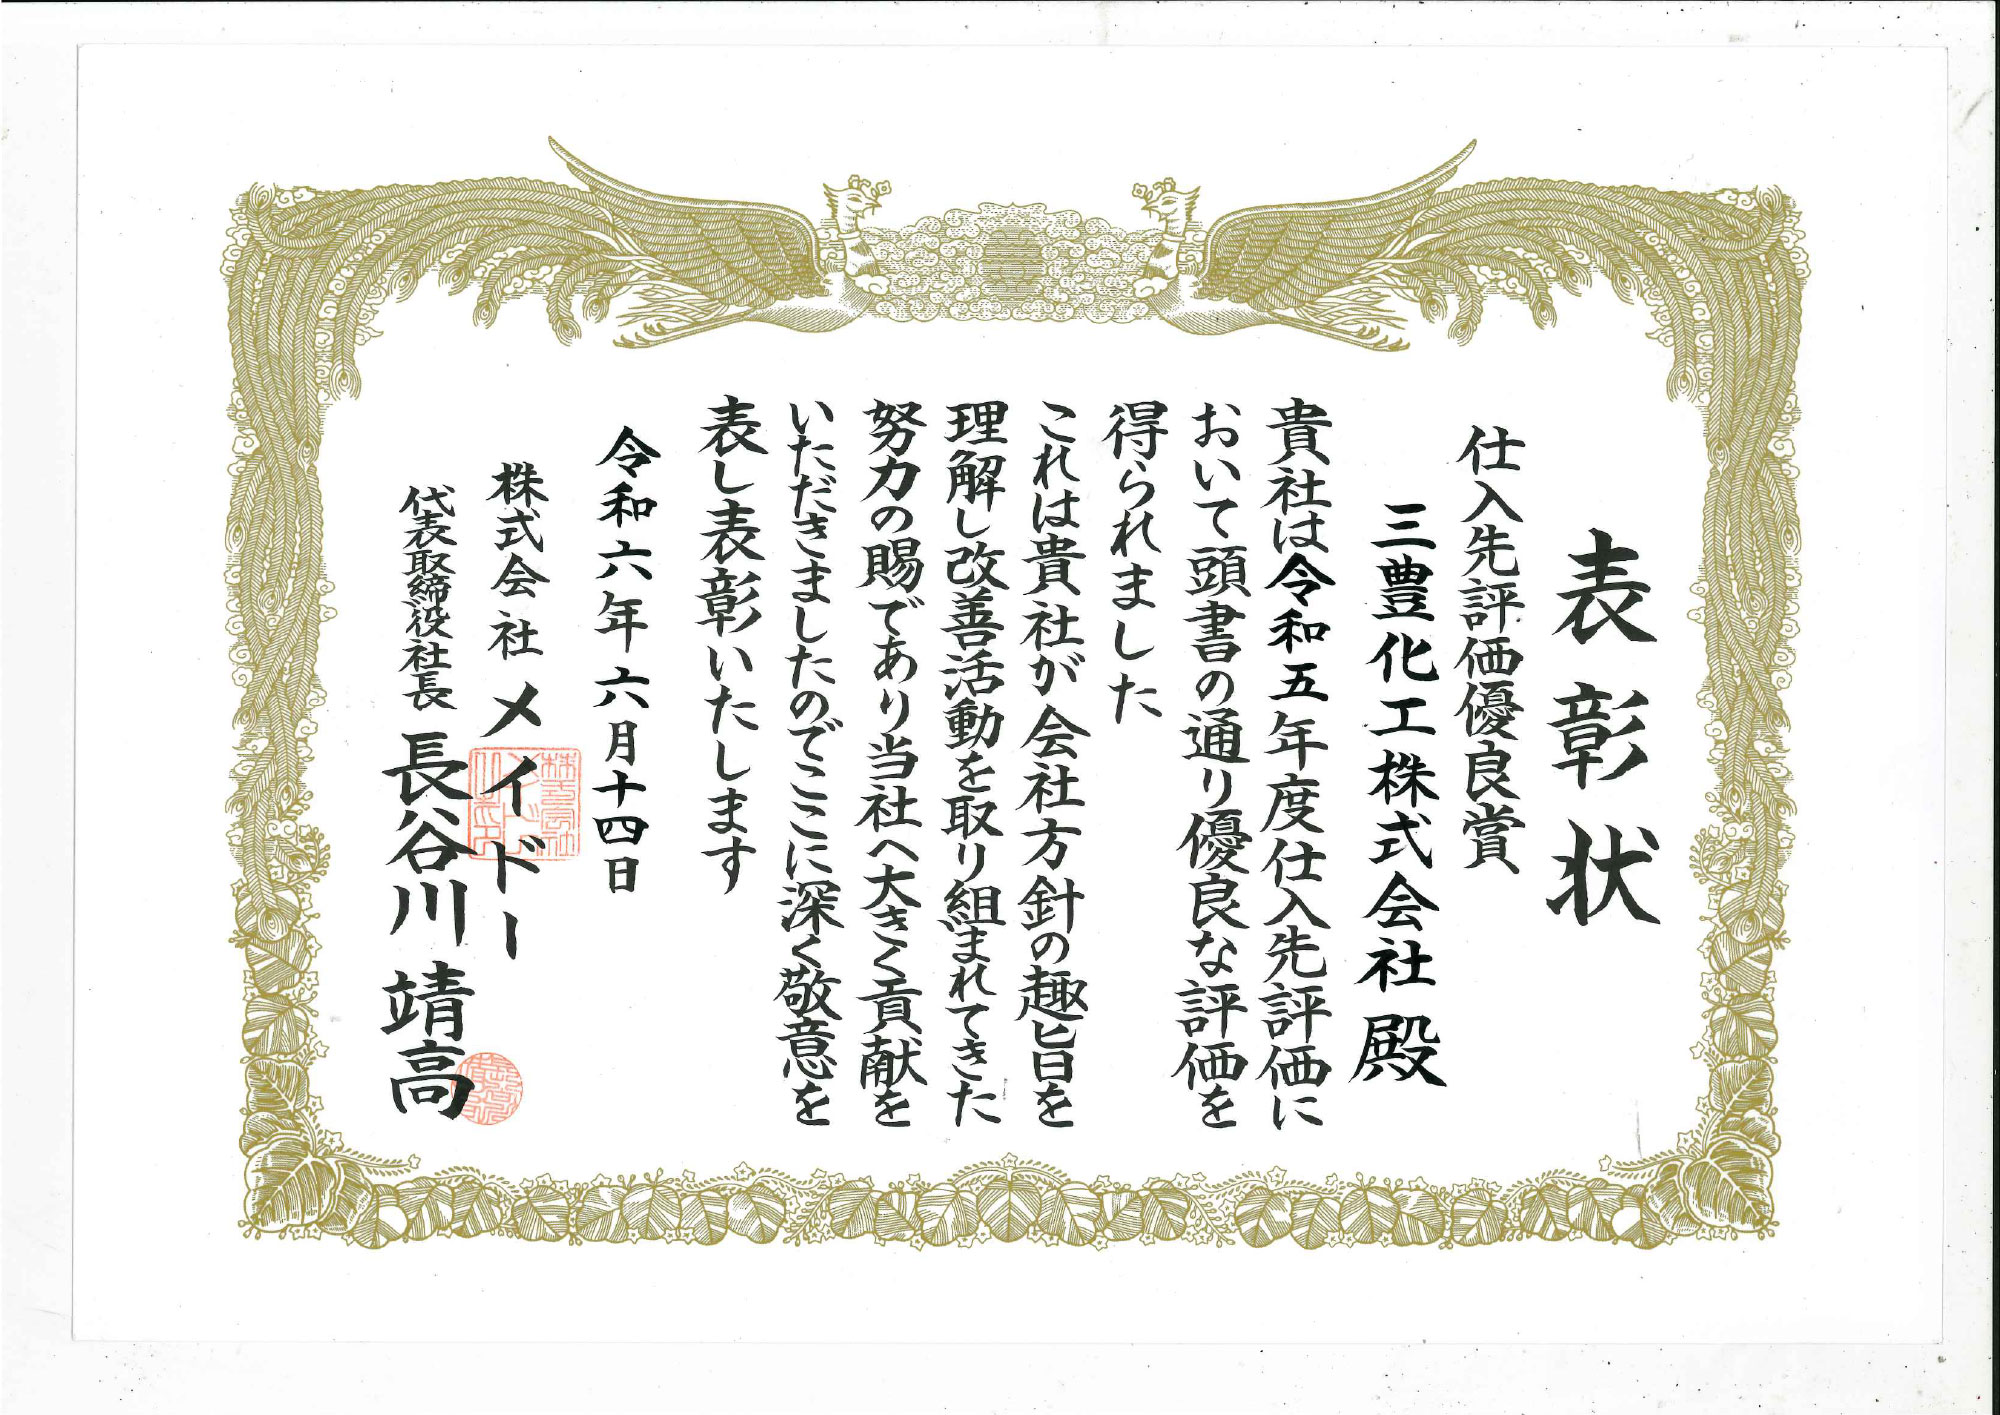 表彰状
仕入先評価優良賞
三豊化工株式会社 殿
貴社は令和五年度仕入先評価に
おいて頭書の通り優良な評価を
得られました
これは貴社が会社方針の趣旨を
理解し改善活動を取り組まれてきた
努力の賜であり当社へ大きく貢献を
いただきましたのでここに深く敬意を
表し表彰いたします
令和六年六月十四日
株式会社メイドー
代表取締役社長 長谷川靖高